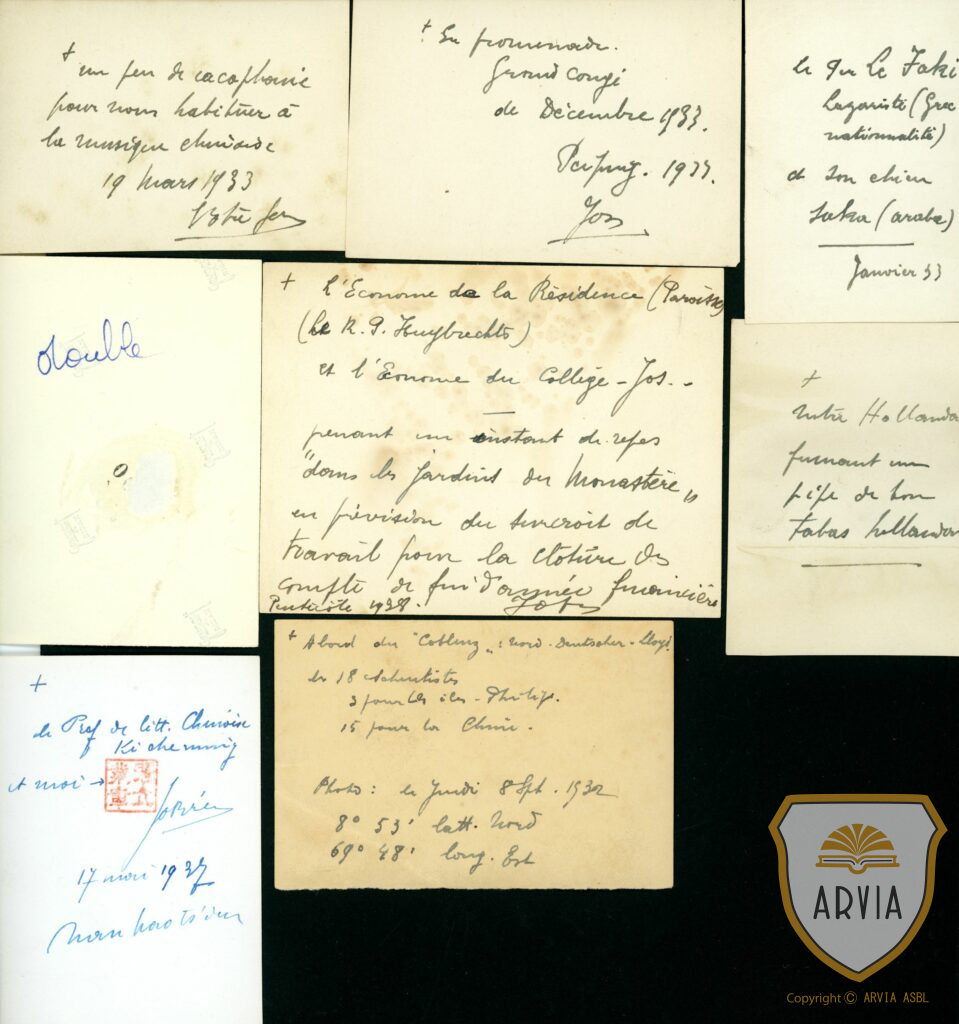 +
un peu de cacaphonie
pour nous habituer à
la musique chinoise
19 Mars 1933
+ En promenade.
Grand congé
de Décembre 1933.
1933.
Jos
le Le Taki
Lazariste (Grec
nationalité)
et son chien
(arabe)
Janvier 33
double
+ L'Econome de la Résidence (Paroisse)
(Le R. P. Huybrechts)
et l'Econome du Collège - Jos. -
prenant un instant de repos
"dans les jardins du Monastère"
en prévision du surcroit de
travail pour la cloture des
compte de fin d'année financière
Pentecôte 1938.
+
notre Hollanda
fumant un
pipe de bon
tabas hollandai
+
le Prof de litt. Chinoise
et moi →
17 mai 1937
+ Abord du "Coblenz" : Nord-Deutscher-Lloyd
les 18
3 pour les îles - Philip.
15 pour la Chine.
Photo : le Jeudi 8 Sept. 1932
8° 53' latt. Nord
69° 48' long. Est
ARVIA
Copyright © ARVIA ASBL